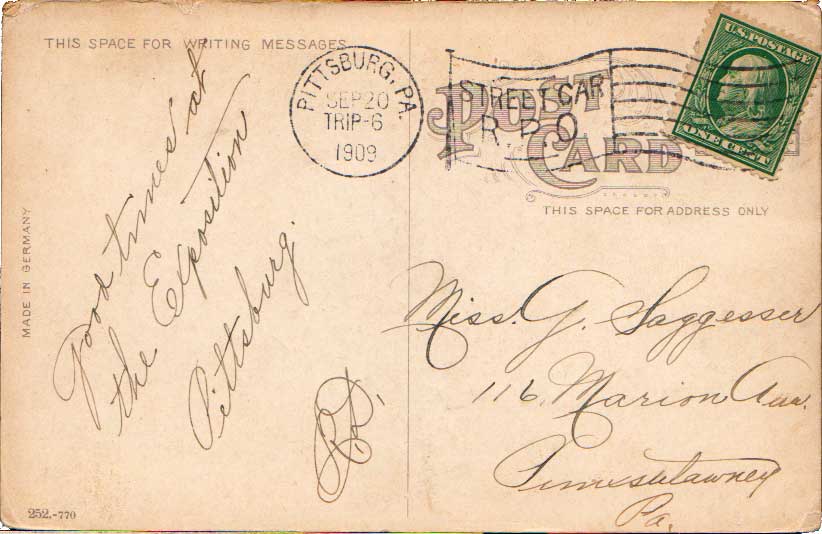 THIS SPACE FOR WRITING MESSAGES
Good times at
the Exposition
Pittsburg.
MADE IN GERMANY
252.-770
PITTSBURG, PA.
SEP 20
TRIP-6
1909
STREET CAR
R.P.O.
POST
CARD
U.S. POSTAGE
ONE CENT
THIS SPACE FOR ADDRESS ONLY
Miss. G. Saggesser
116, Marion Ave.
Punxsutawney
Pa.